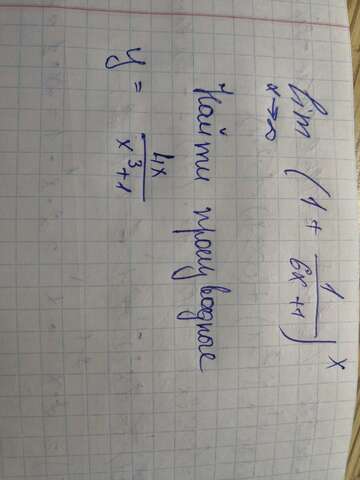 lim x→∞ (1 + 1/(6x+1))^x
Найти производные
y = 4x/(x³+1)